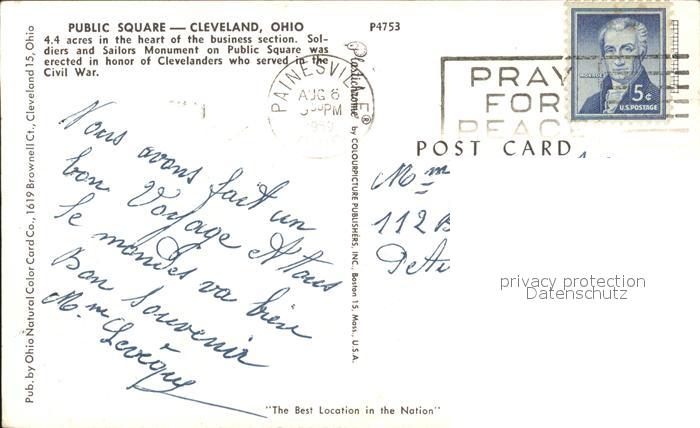 PUBLIC SQUARE — CLEVELAND, OHIO
4.4 acres in the heart of the business section. Sol-
diers and Sailors Monument on Public Square was
erected in honor of Clevelanders who served in the
Civil War.
P4753
Pub. by Ohio Natural Color Card Co., 1619 Brownell Ct., Cleveland 15, Ohio
Plastichrome® by COLOURPICTURE PUBLISHERS, INC., Boston 15, Mass., U.S.A.
PAINESVILLE
AUG 6
PM
1959
PRAY
FOR
PEACE
MONROE
5¢
U.S. POSTAGE
POST CARD
Nous avons fait un
bon Voyage et tous
le mondes va bien
Bon Souvenir
Mme Levèque
Mm
112 B
privacy protection
Datenschutz
"The Best Location in the Nation"